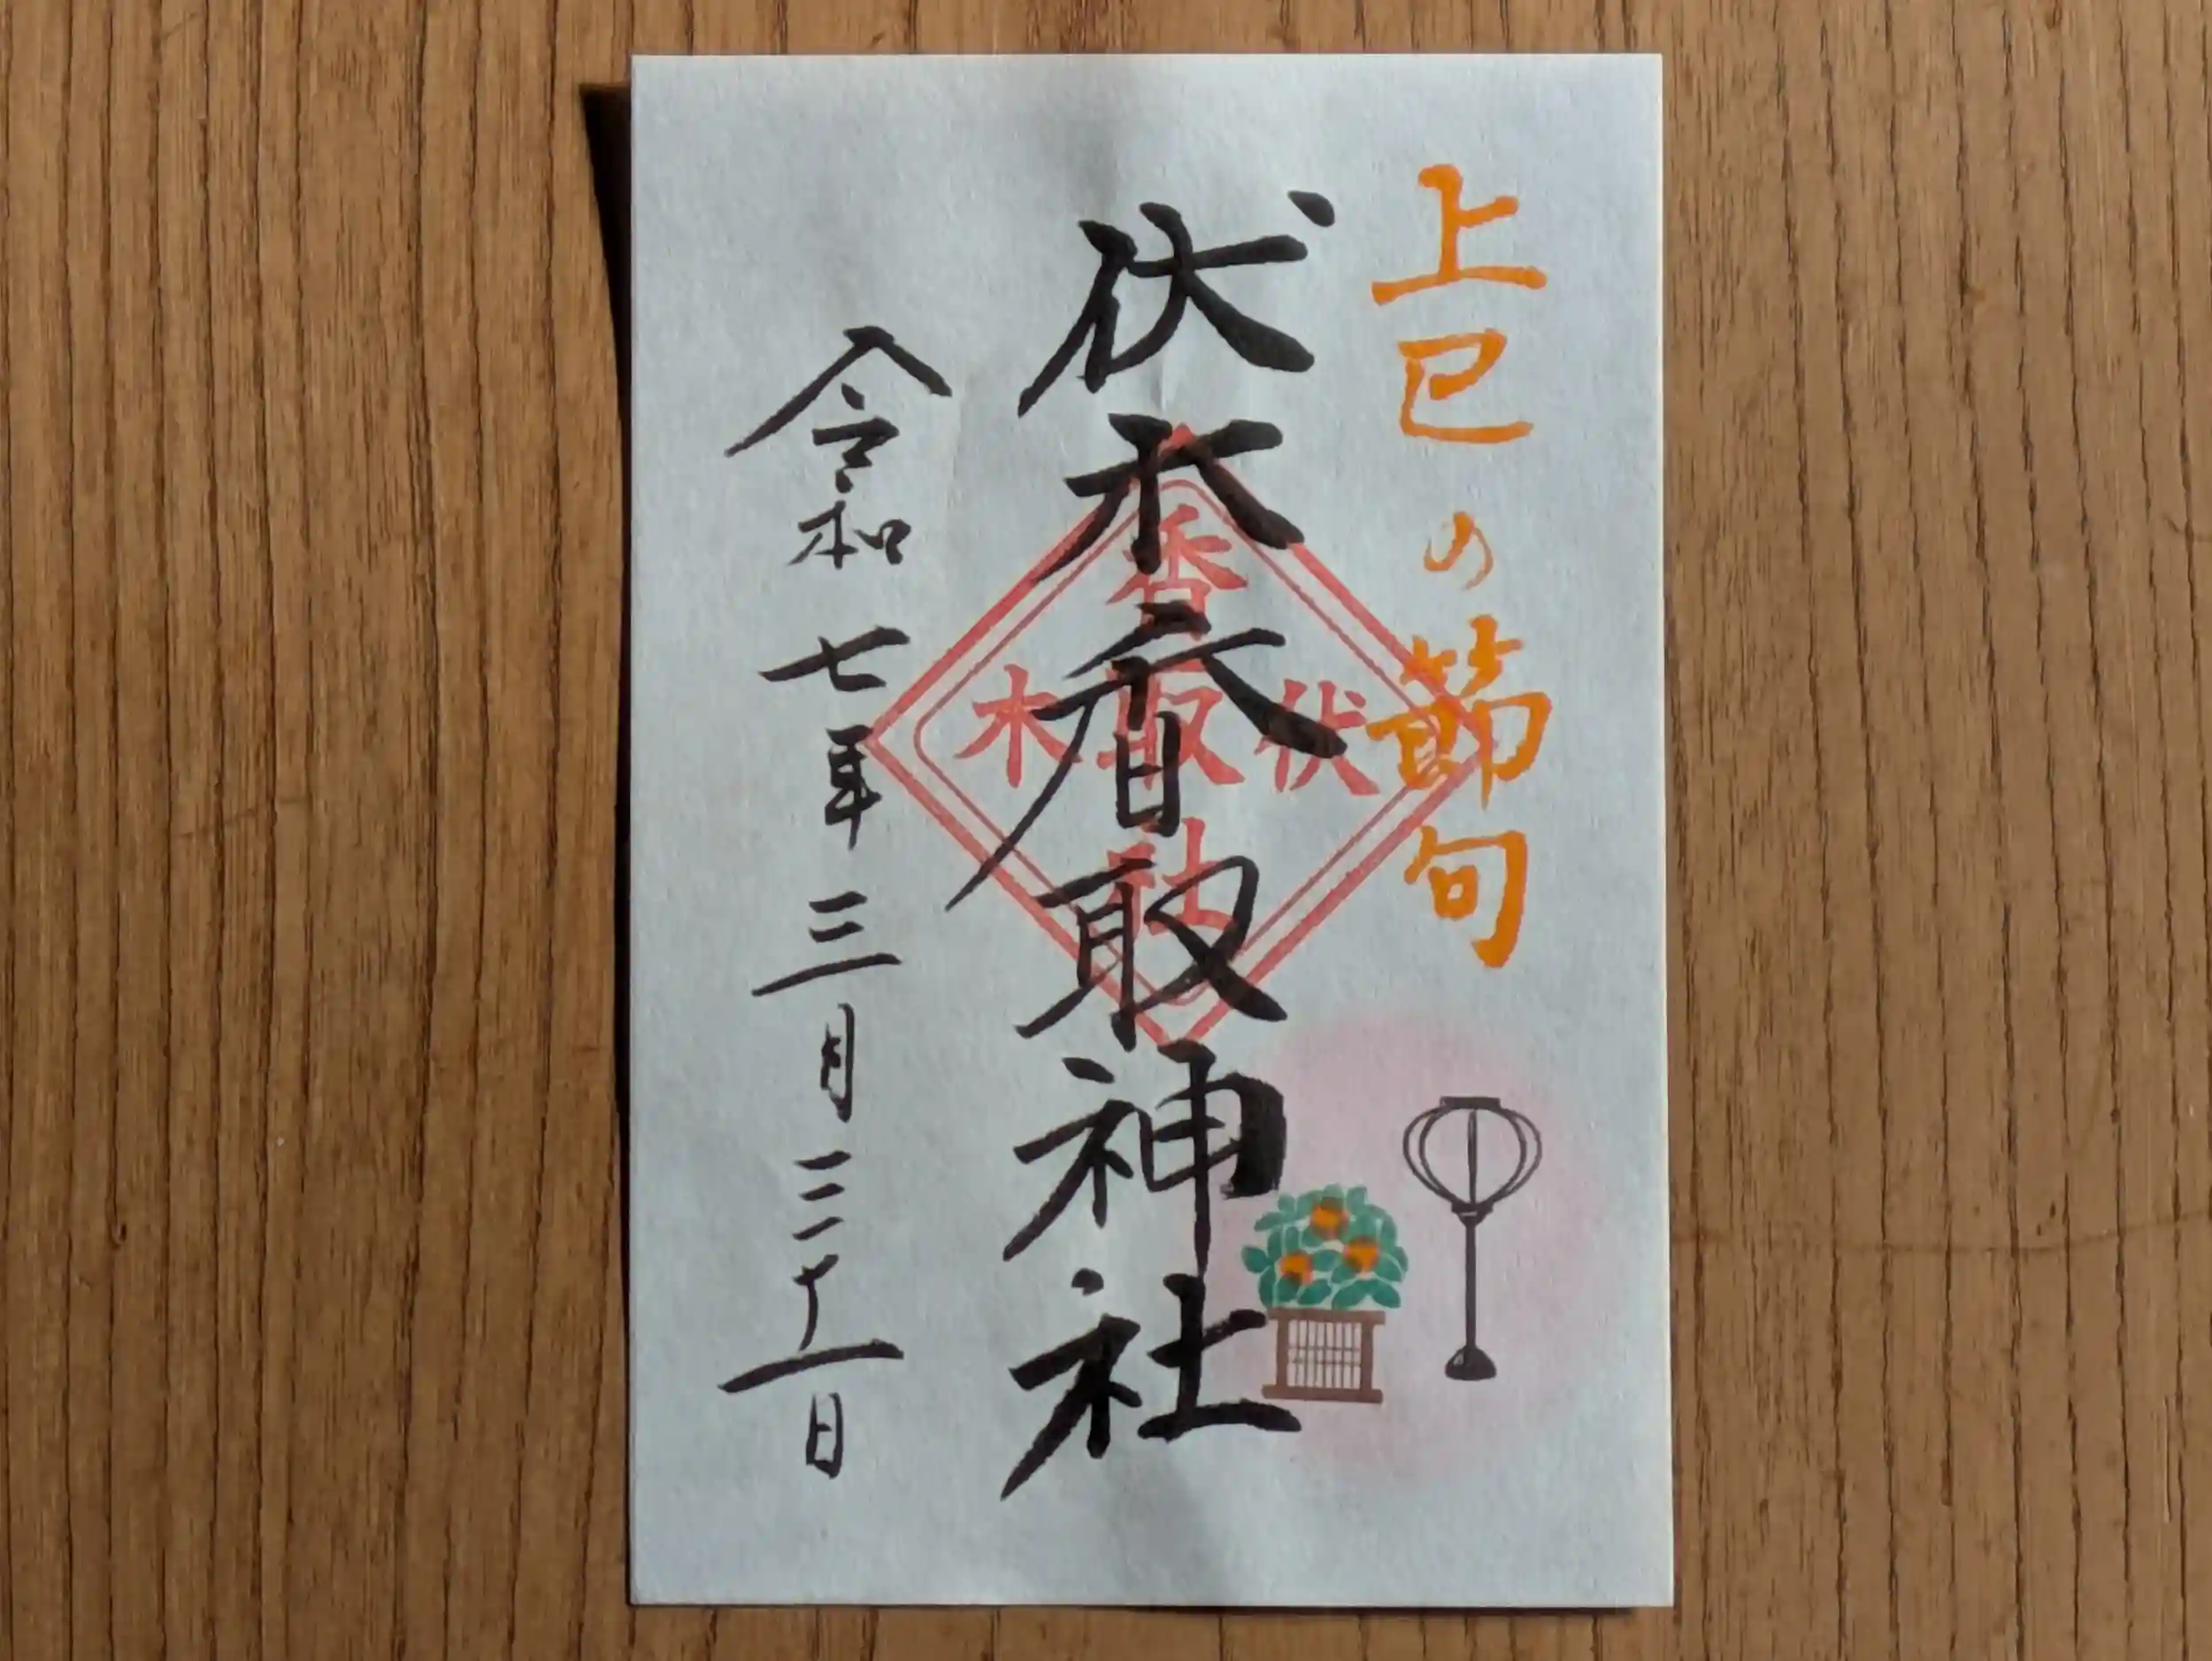 上巳の節句
伏木香取神社
令和七年三月三十一日
伏木
香取社